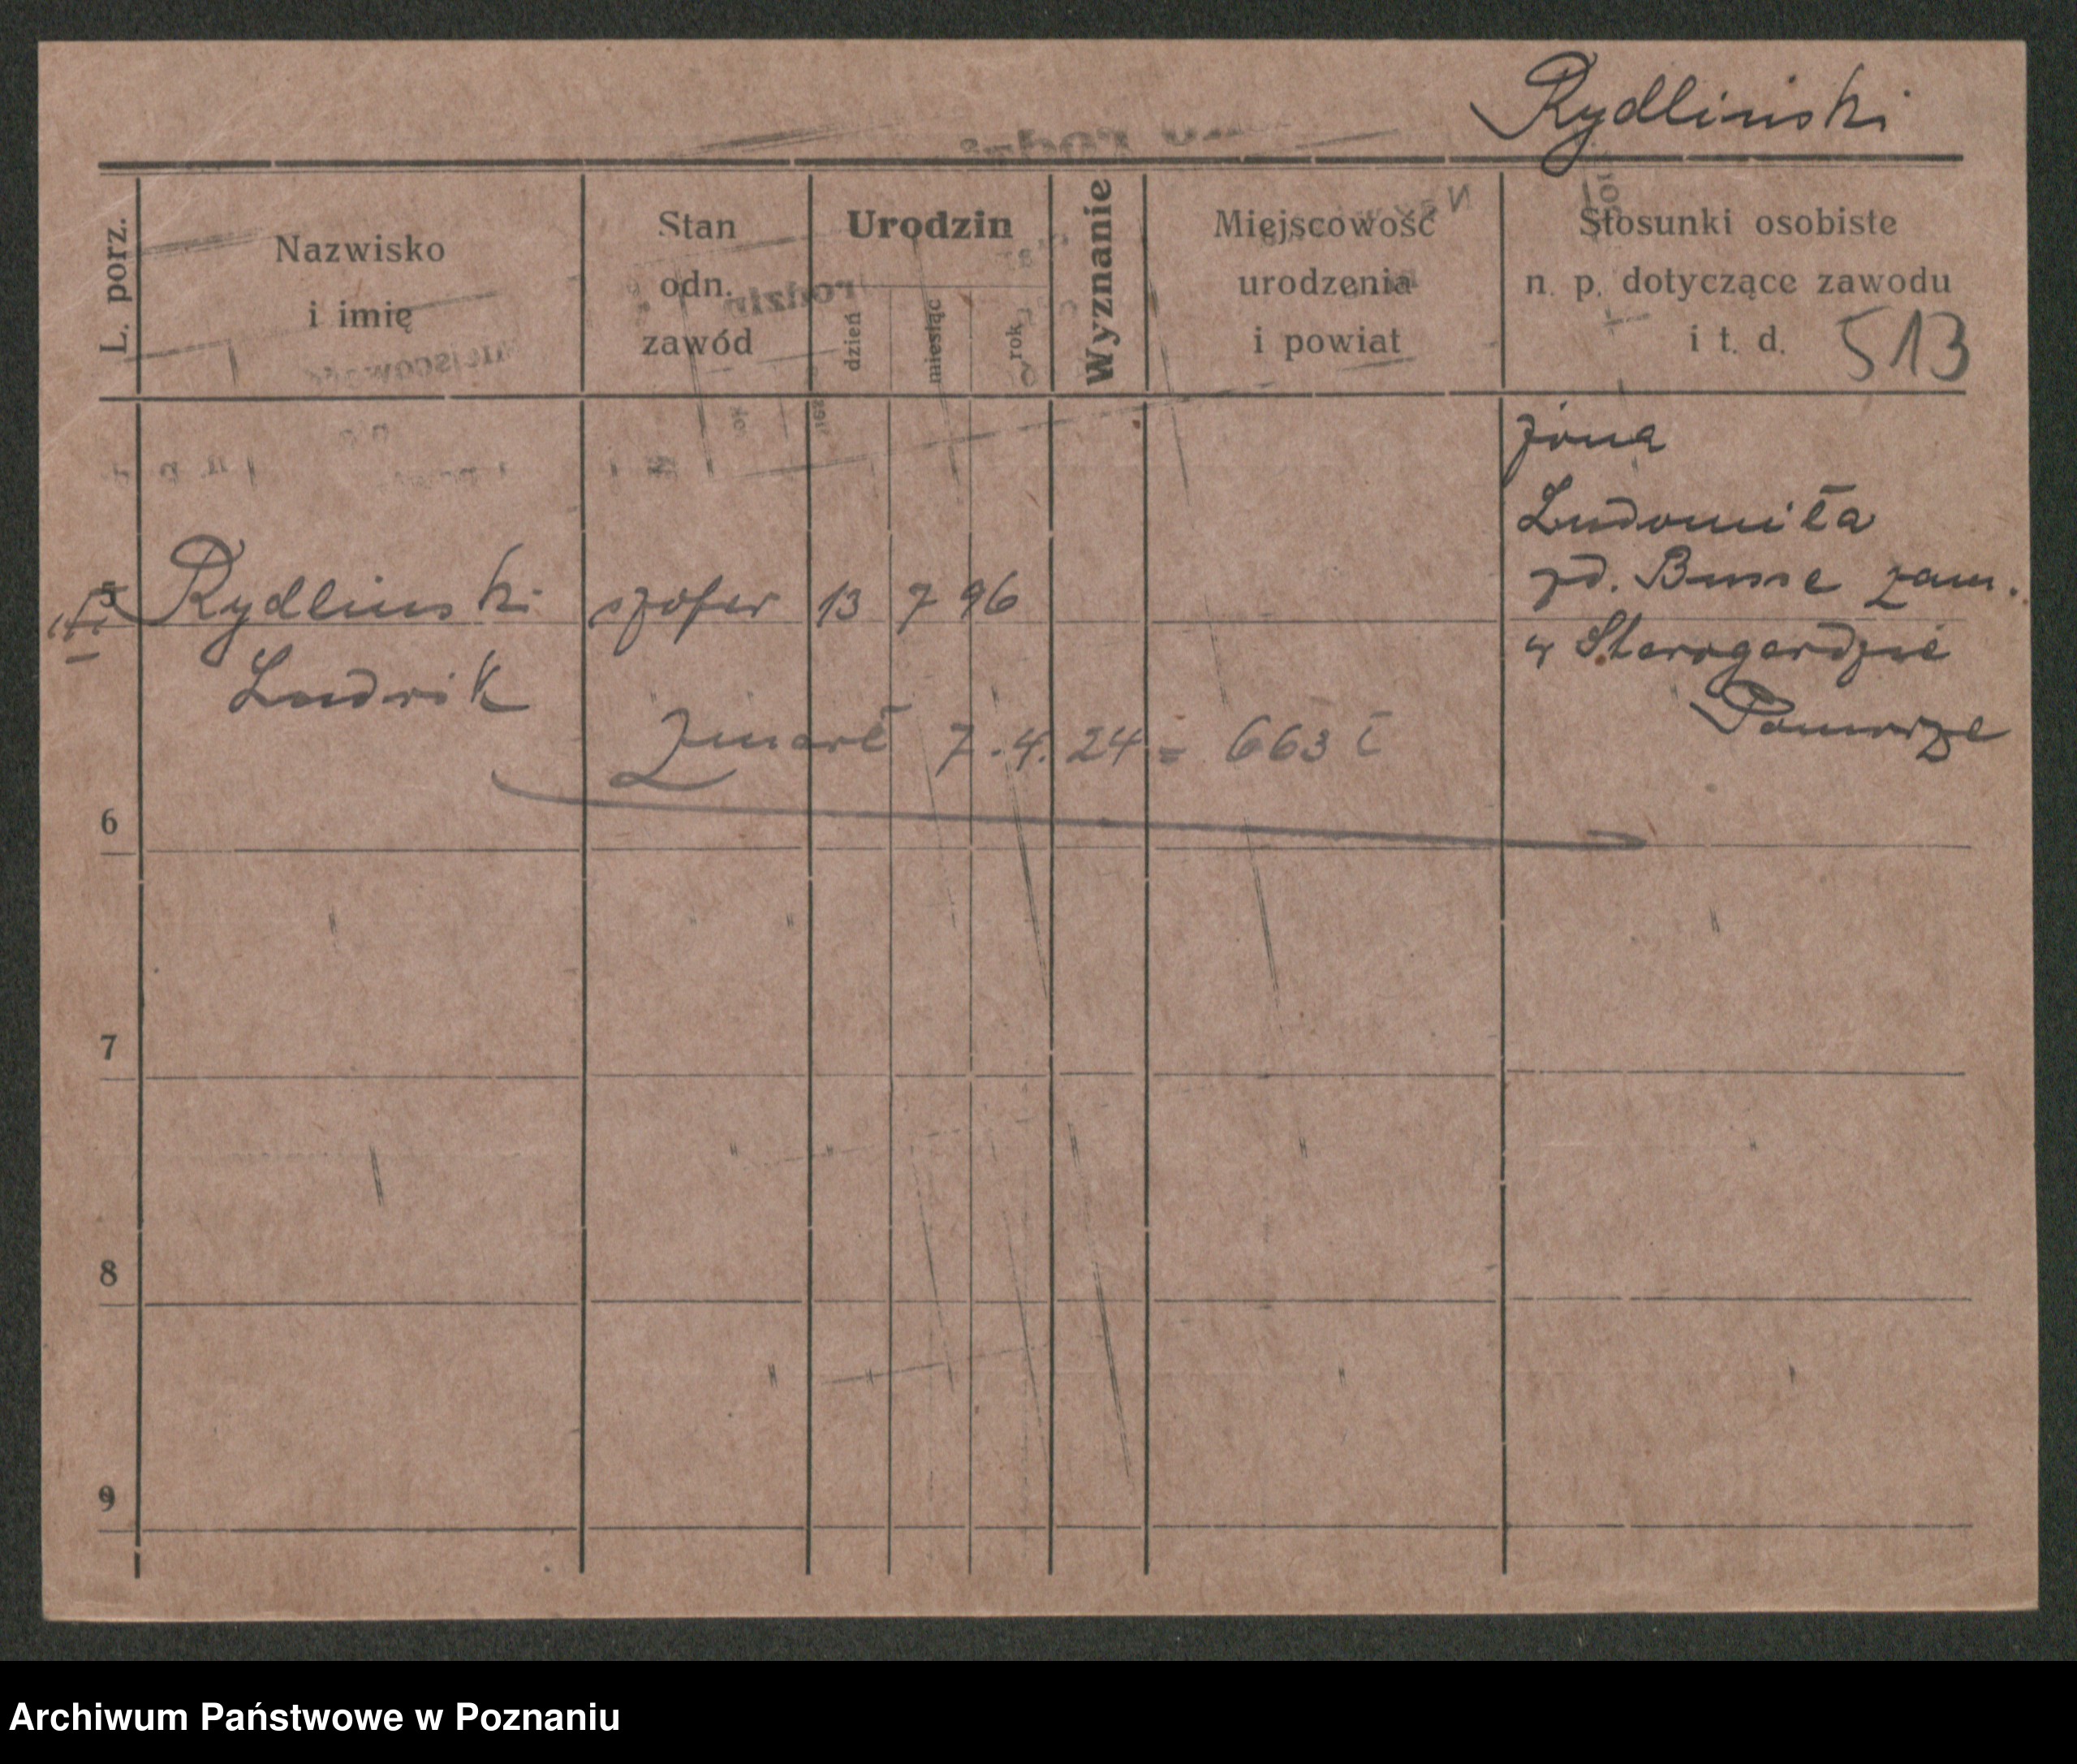 Rydlinski
L. porz.
Nazwisko
i imię
Stan
odn.
zawód
Urodzin
dzień
miesiąc
rok
Wyznanie
Miejscowość
urodzenia
i powiat
Stosunki osobiste
n. p. dotyczące zawodu
i t. d.
513
żona
Ludomiła
zd. Busse zam.
w Starogardzie
Pomorze
5 Rydlinski szofer 13 7 96
Ludwik
Zmarł 7.4.24 = 663
6
7
8
9
Archiwum Państwowe w Poznaniu